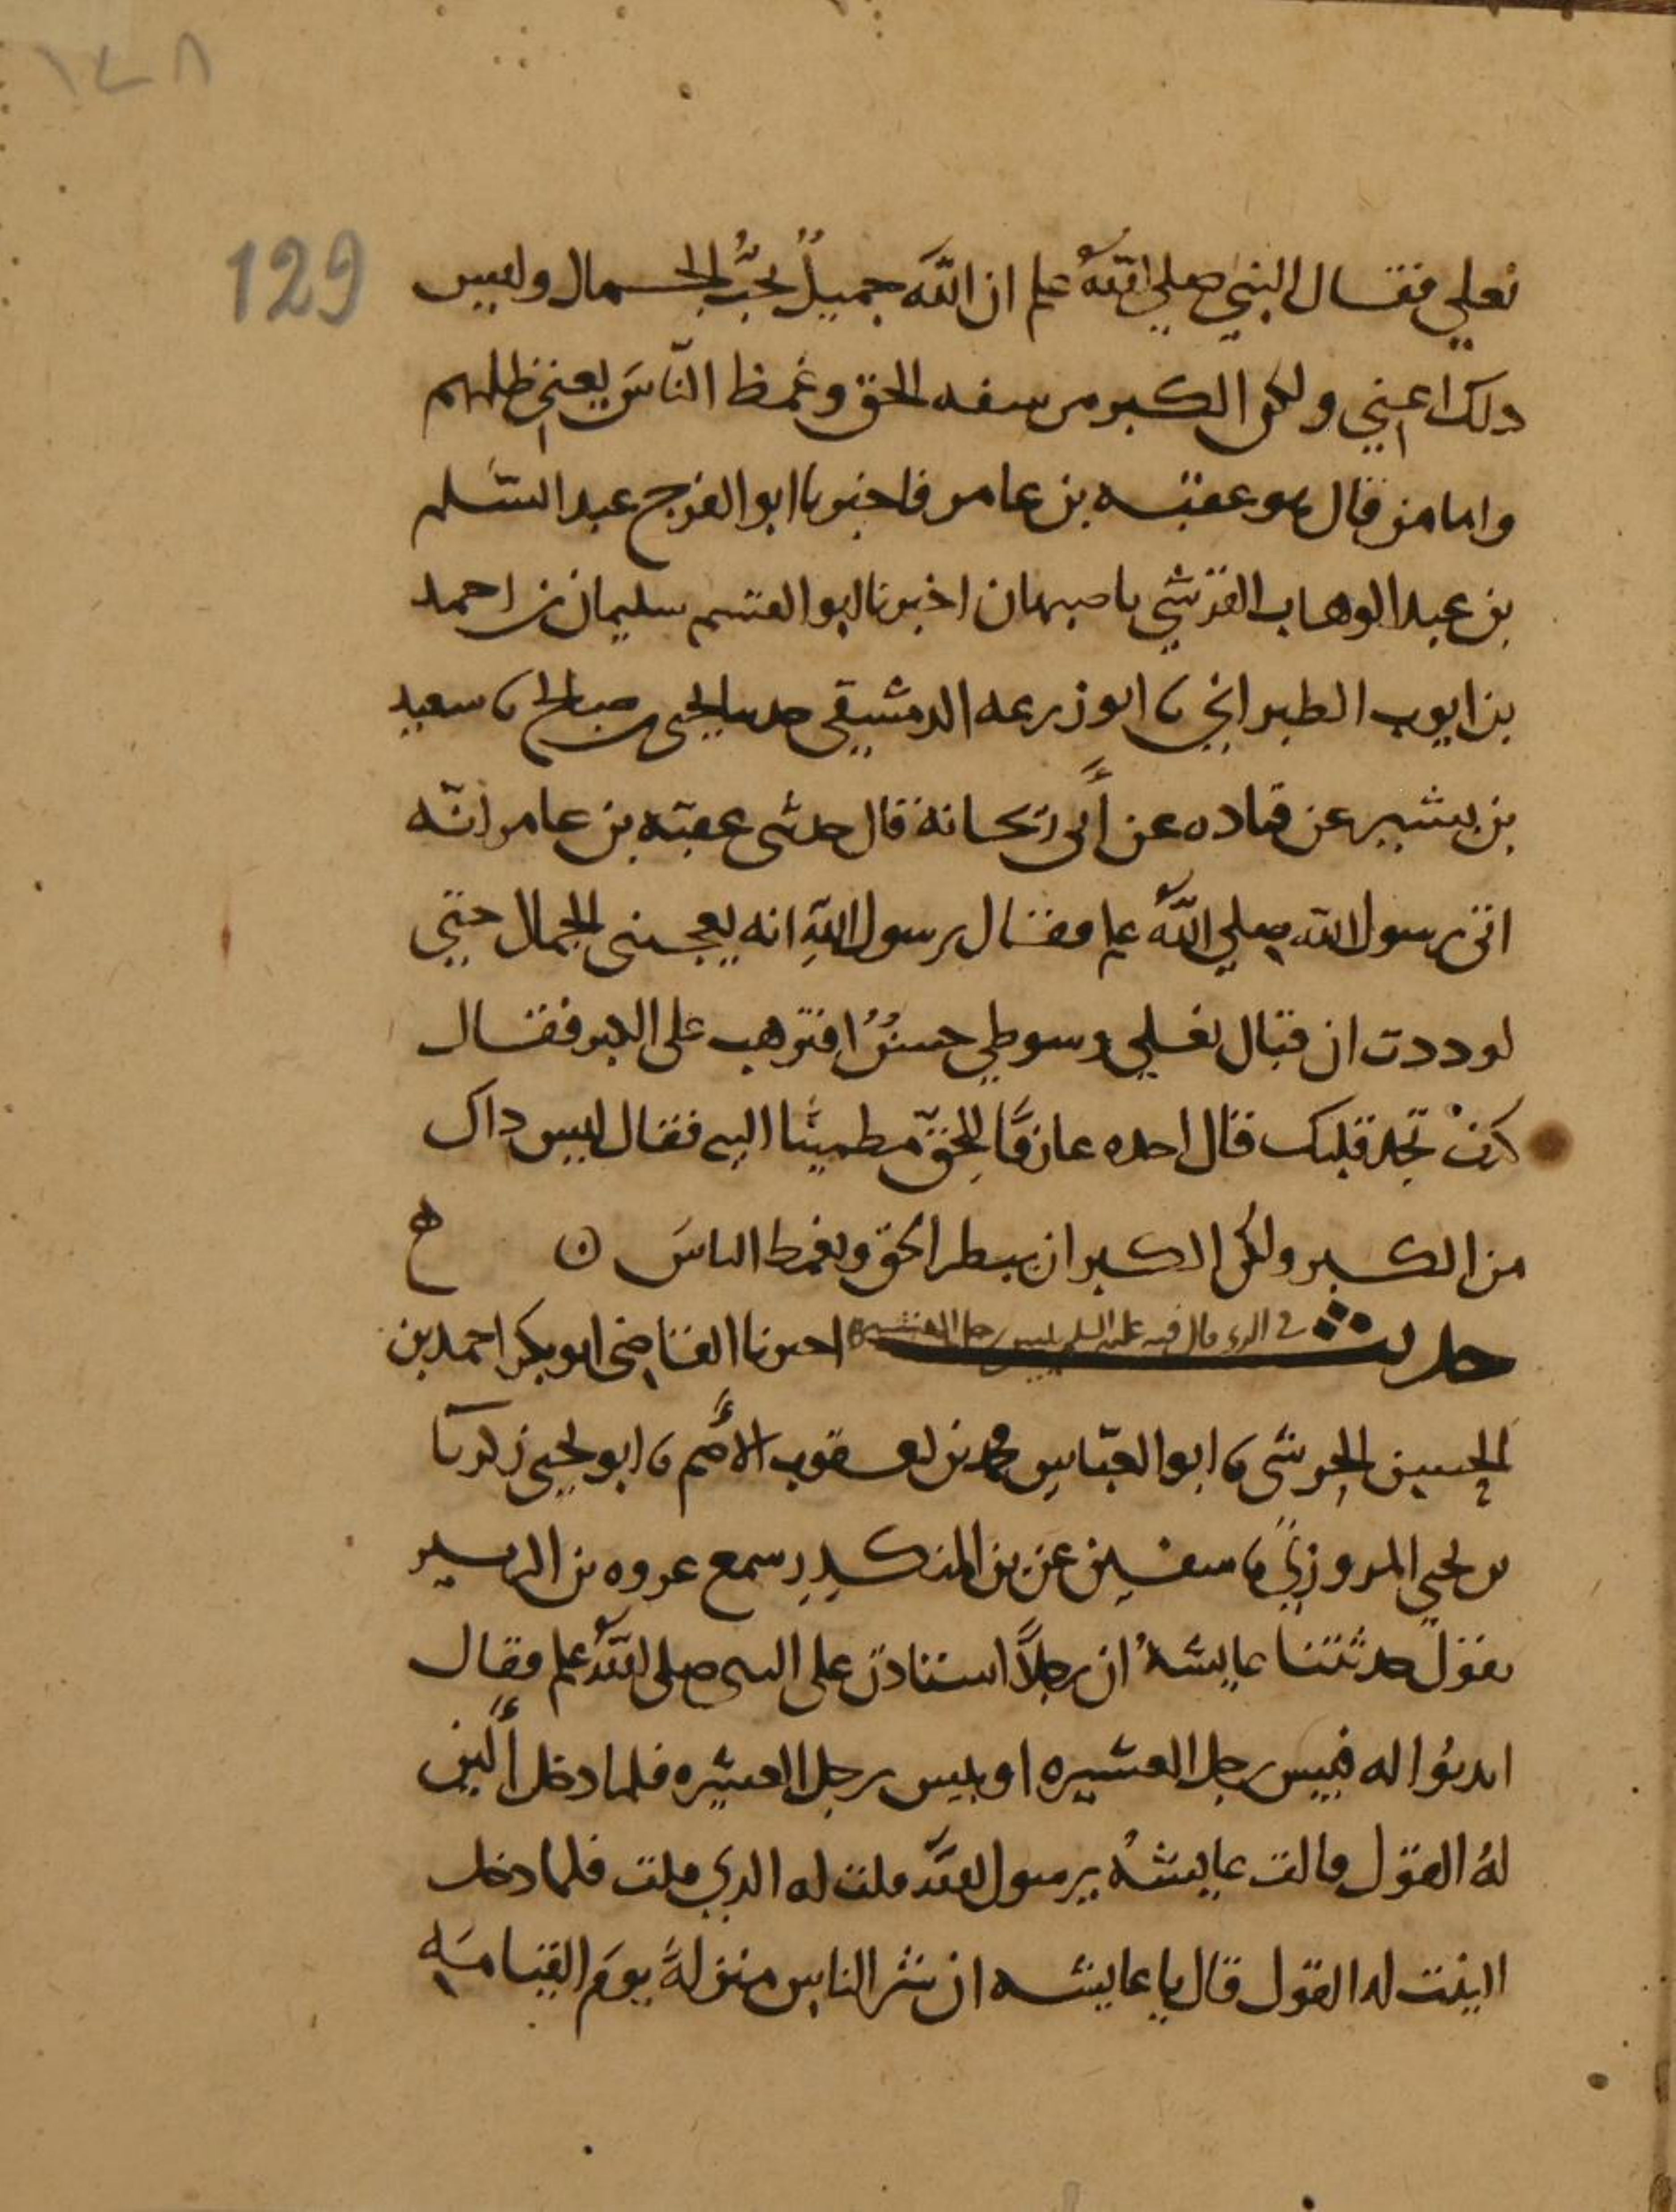 ١٤٨
129
نعلي فقال النبي صلي الله علم ان الله جميلٌ يحبُّ الجمال وليس
ذلك اعني ولكن الكبر من سفه الحق وغمط النّاسَ يعني ظلمهم
واما من قال هو عقبه بن عامر فاخبرنا ابو الفرج عبد السّلم
بن عبد الوهاب القرشي باصبهان اخبرنا ابو القسم سليمان بن احمد
بن ايوب الطبراني نا ابو زرعه الدمشقي حدثنا يحيى بن صالح نا سعيد
بن بشير عن قتاده عن أبي ريحانة قال حدثنى عقبة بن عامر انّه
اتى رسول الله صلي اللهُ علم فقال يرسول اللهِ انه يعجبنى الجمال حتي
لوددت ان قبال نعلي وسوطي حسنٌ افترهب على الكبر فقال
كيف تجد قلبك قال اجده عارفًا للحقّ مطمينا اليه فقال ليس داك
من الكبر ولكن الكبر ان يبطر الحق ويغمط الناسَ ه ح
حديث في الدي قال فيه عليه السلم بيس رجل العشيرة اخبرنا القاضي ابو بكر احمد بن
الحسين الحرشى نا ابو العبّاس محمد بن يعقوب الأصم نا ابو يحيى زكريا
بن يحيي المروزي نا سفين عن بن المنكدر سمع عروه بن الزبير
يقول حدثتنا عايشهُ ان رجلاً استاذن على النبى صلى اللهُ علم فقال
ايذنوا له فبيس رجل العشيره او بيس رجل العشيره فلما دخل ألين
لهُ القول قالت عايشهُ يرسول الله قلت له الدي قلت فلما دخل
الينت له القول قال يا عايشه ان شر الناس منزلةً يومَ القيامةِ